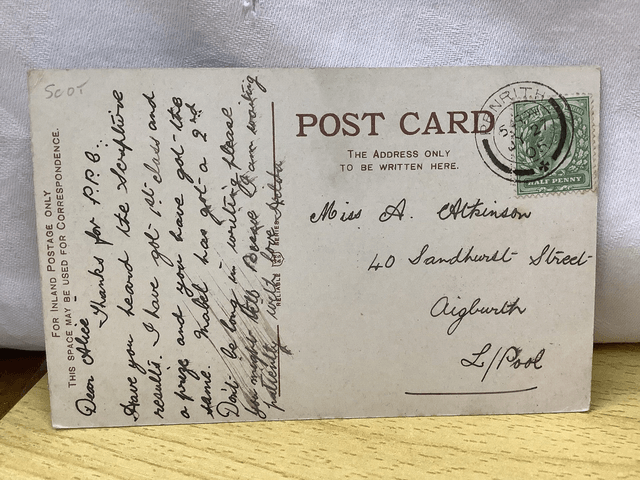 Scot
FOR INLAND POSTAGE ONLY
THIS SPACE MAY BE USED FOR CORRESPONDENCE.
Dear Alice
Thanks for P.P.C.
Have you heard the Scripture
results. I have got 1st class and
a prize and you have got the
same. Mabel has got a 2nd
Don't be long in writing please
you might Because I am waiting
patiently with love
POST CARD
THE ADDRESS ONLY
TO BE WRITTEN HERE.
PENRITH
HALF PENNY
Miss A. Atkinson
40 Sandhurst Street
Aigburth
L/Pool